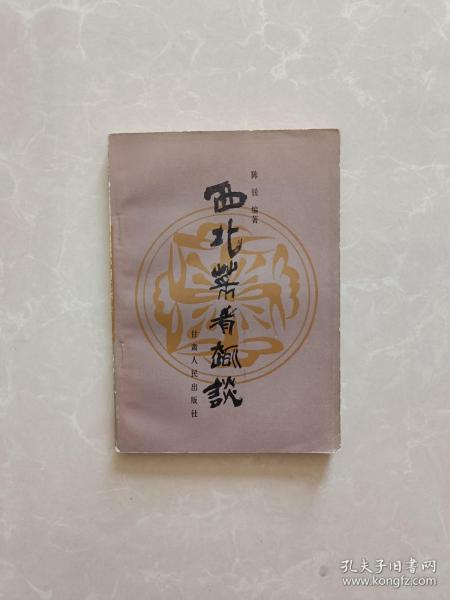 陈铉 编著
西北菜肴趣谈
甘肃人民出版社
孔夫子旧书网
www.kongfz.com